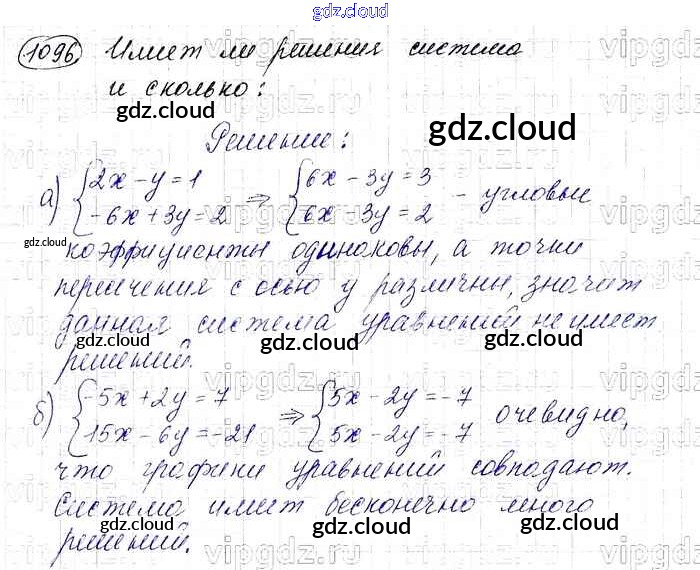 gdz.cloud
1096 Имеет ли решения система
и сколько:
Решение:
а) {2x - y = 1 ⇒ {6x - 3y = 3 - угловые
{-6x + 3y = 2 {6x - 3y = 2
коэффициенты одинаковы, а точки
пересечения с осью y различны, значит
данная система уравнений не имеет
решений.
б) {-5x + 2y = 7 ⇒ {5x - 2y = -7 очевидно,
{15x - 6y = -21 {5x - 2y = -7
что графики уравнений совпадают.
Система имеет бесконечно много
решений.
gdz.cloud
gdz.cloud
gdz.cloud
gdz.cloud
gdz.cloud
gdz.cloud
gdz.cloud
gdz.cloud
gdz.cloud
gdz.cloud
vipgdz.ru